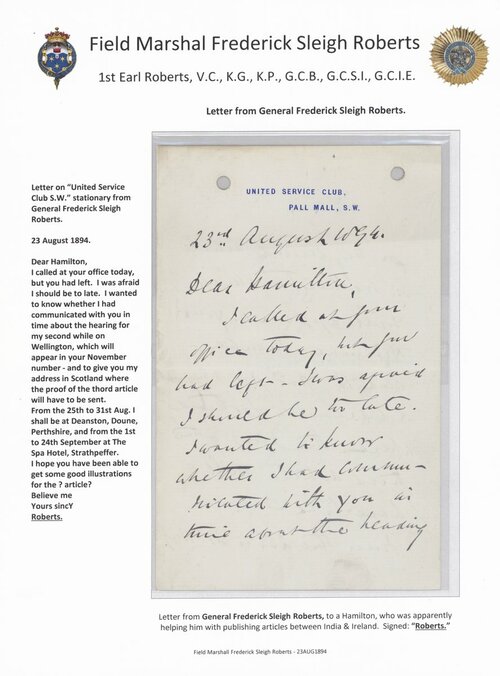 Field Marshal Frederick Sleigh Roberts
1st Earl Roberts, V.C., K.G., K.P., G.C.B., G.C.S.I., G.C.I.E.
Letter from General Frederick Sleigh Roberts.
Letter on “United Service
Club S.W.” stationary from
General Frederick Sleigh
Roberts.
23 August 1894.
Dear Hamilton,
I called at your office today,
but you had left.  I was afraid
I should be to late.  I wanted
to know whether I had
communicated with you in
time about the hearing for
my second while on
Wellington, which will
appear in your November
number - and to give you my
address in Scotland where
the proof of the thord article
will have to be sent.
From the 25th to 31st Aug. I
shall be at Deanston, Doune,
Perthshire, and from the 1st
to 24th September at The
Spa Hotel, Strathpeffer.
I hope you have been able to
get some good illustrations
for the ? article?
Believe me
Yours sincY
Roberts.
UNITED SERVICE CLUB,
PALL MALL, S.W.
23rd August 1894.
Dear Hamilton,
I called at your
office today, but you
had left - I was afraid
I should be too late.
I wanted to know
whether I had commu-
nicated with you in
time about the heading
Letter from General Frederick Sleigh Roberts, to a Hamilton, who was apparently
helping him with publishing articles between India & Ireland.  Signed: “Roberts.”
Field Marshall Frederick Sleigh Roberts - 23AUG1894